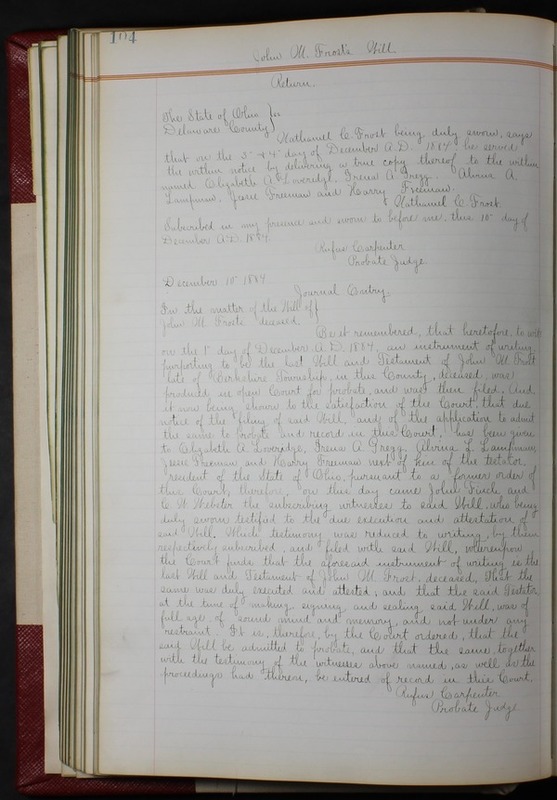 104
John M. Frost's Will
Return.
The State of Ohio } ss
Delaware County }
Nathaniel C. Frost being duly sworn, says
that on the 3" & 4" day of December A.D. 1884 he served
the within notice by delivering a true copy thereof to the within
named Elizabeth A. Loveridge, Irena A. Gregg. Alvina A
Lampman, Jesse Freeman and Harry Freeman.
Nathaniel C. Frost.
Subscribed in my presence and sworn to before me this 10" day of
December A.D. 1884.
Rufus Carpenter
Probate Judge
December 10" 1884
Journal Entry.
In the matter of the Will of
John M. Frost's deceased
Be it remembered, that heretofore, to wit
on the 1" day of December A.D. 1884, an instrument of writing
purporting to be the last Will and Testament of John M. Frost
late of Berkshire Township, in this County, deceased, was
produced in open Court for probate, and was then filed. And
it now being shown to the satisfaction of the Court, that due
notice of the filing of said Will, and of the application to admit
the same to probate and record in this Court, has been given
to Elizabeth A. Loveridge, Irena A. Gregg, Alvina L. Lampman,
Jesse Freeman and Harry Freeman next of kin of the testator,
resident of the State of Ohio, pursuant to a former order of
this Court, therefore, on this day came John and
C. W. Webster the subscribing witnesses to said Will, who being
duly sworn testified to the due execution and attestation of
said Will. Which testimony was reduced to writing, by them
respectively subscribed, and filed with said Will, whereupon
the Court finds that the aforesaid instrument of writing is the
last Will and Testament of John M. Frost, deceased, That the
same was duly executed and attested, and that the said Testator
at the time of making signing and sealing said Will, was of
full age, of sound mind and memory, and not under any
restraint. It is, therefore, by the Court ordered, that the
said Will be admitted to probate, and that the same together
with the testimony of the witnesses above named, as well as the
proceedings had therein, be entered of record in this Court.
Rufus Carpenter
Probate Judge